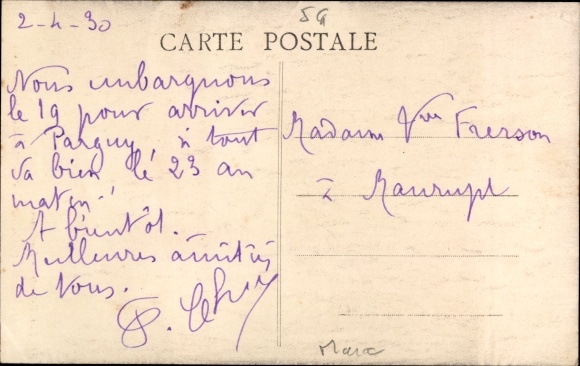 2-4-30
CARTE POSTALE
Nous embarquons
le 19 pour arriver
à Pargny, si tout
va bien le 23 au
matin.
A bientôt.
Meilleures amitiés
de Vous.
Madame Vve Frerson
à Maurupt
Maroc